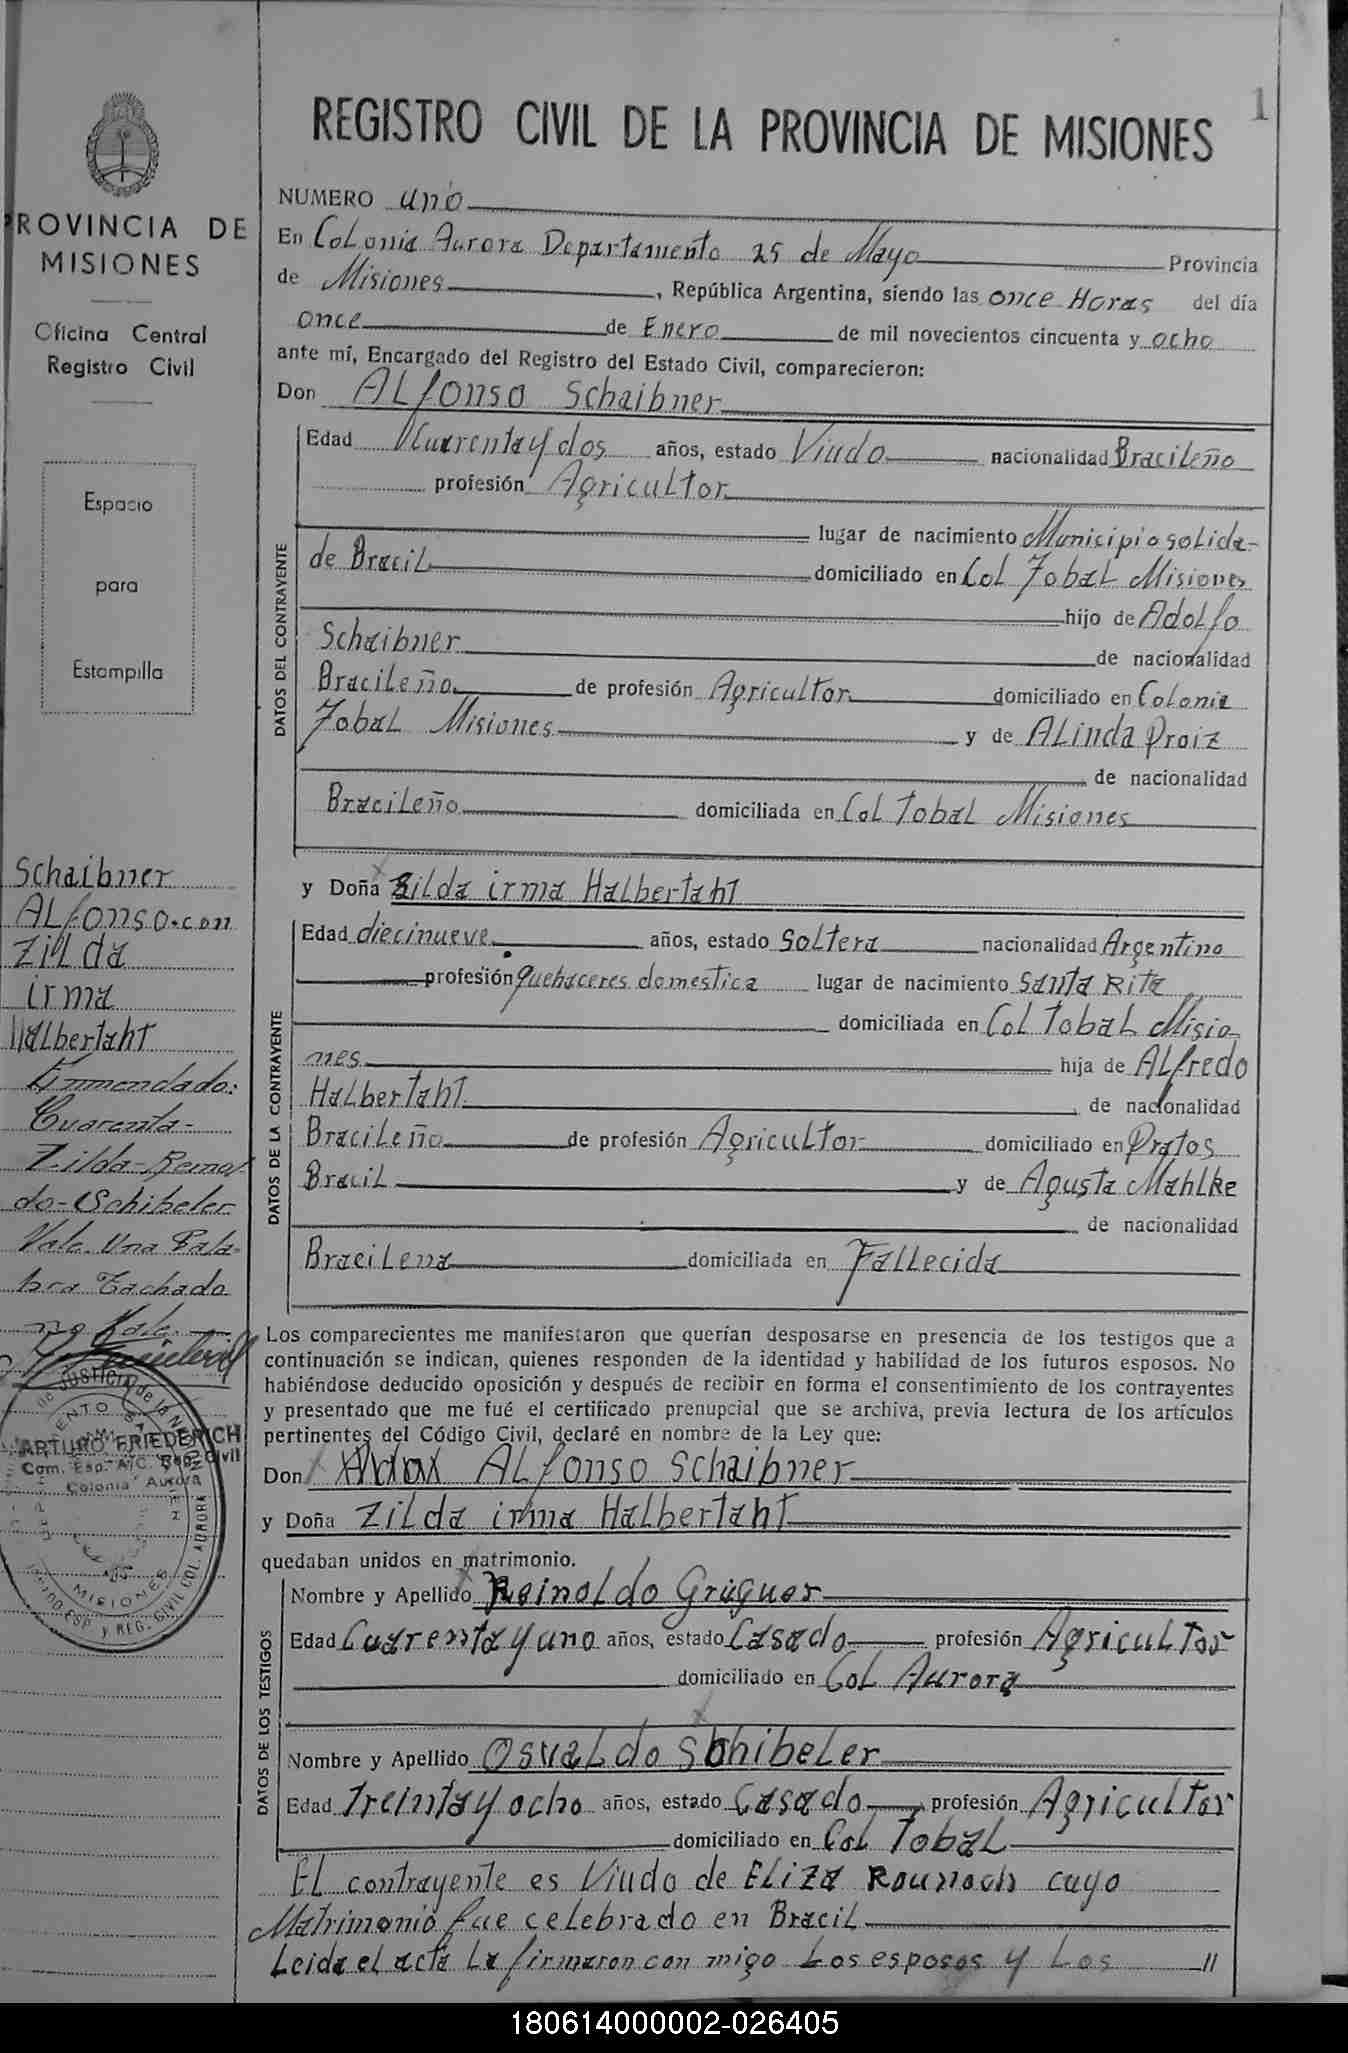 1
REGISTRO CIVIL DE LA PROVINCIA DE MISIONES
PROVINCIA DE
MISIONES
Oficina Central
Registro Civil
Espacio
para
Estampilla
Schaibner
ALfonso.con
ZiLda
irma
Halbertaht
Enmendado:
Cuarenta-
Zilda-Reinol
do-Schibeler
Vale Una Pala-
bra Tachado
no Vale.
ARTURO FRIEDERICH
Com. Esp. A/C. Reg. Civil
Colonia Aurora
NUMERO uno
En CoLonia Aurora Departamento 25 de Mayo Provincia
de Misiones, República Argentina, siendo las once Horas del día
once de Enero de mil novecientos cincuenta y ocho
ante mí, Encargado del Registro del Estado Civil, comparecieron:
Don ALfonso Schaibner
DATOS DEL CONTRAYENTE
Edad Cuarenta y dos años, estado Viudo nacionalidad BraciLeño
profesión AgricuLtor
lugar de nacimiento Municipio soLida-
de BraciL domiciliado en CoL TobaL Misiones
hijo de AdoLfo
Schaibner de nacionalidad
BraciLeño de profesión AgricuLtor domiciliado en CoLonia
TobaL Misiones y de ALinda Proiz
de nacionalidad
BraciLeño domiciliada en CoL TobaL Misiones
y Doña ZiLda irma HaLbertaht
DATOS DE LA CONTRAYENTE
Edad diecinueve años, estado SoLtera nacionalidad Argentino
profesión quehaceres domestica lugar de nacimiento Santa Rita
domiciliada en CoL TobaL Misio-
nes hija de ALfredo
HaLbertaht de nacionalidad
BraciLeño de profesión AgricuLtor domiciliado en Pratos
BraciL y de Agusta MahLke
de nacionalidad
BraciLena domiciliada en FaLLecida
Los comparecientes me manifestaron que querían desposarse en presencia de los testigos que a
continuación se indican, quienes responden de la identidad y habilidad de los futuros esposos. No
habiéndose deducido oposición y después de recibir en forma el consentimiento de los contrayentes
y presentado que me fué el certificado prenupcial que se archiva, previa lectura de los artículos
pertinentes del Código Civil, declaré en nombre de la Ley que:
Don ALfonso Schaibner
y Doña ZiLda irma HaLbertaht
quedaban unidos en matrimonio.
DATOS DE LOS TESTIGOS
Nombre y Apellido ReinoLdo Grüguer
Edad Cuarenta y uno años, estado Casado profesión AgricuLtor
domiciliado en CoL Aurora
Nombre y Apellido OsvaLdo SchibeLer
Edad Treinta y ocho años, estado Casado profesión AgricuLtor
domiciliado en CoL TobaL
EL contrayente es Viudo de ELiza cuyo
Matrimonio fue celebrado en BraciL
Leida eL acta La firmaron con migo Los esposos y Los //
180614000002-026405